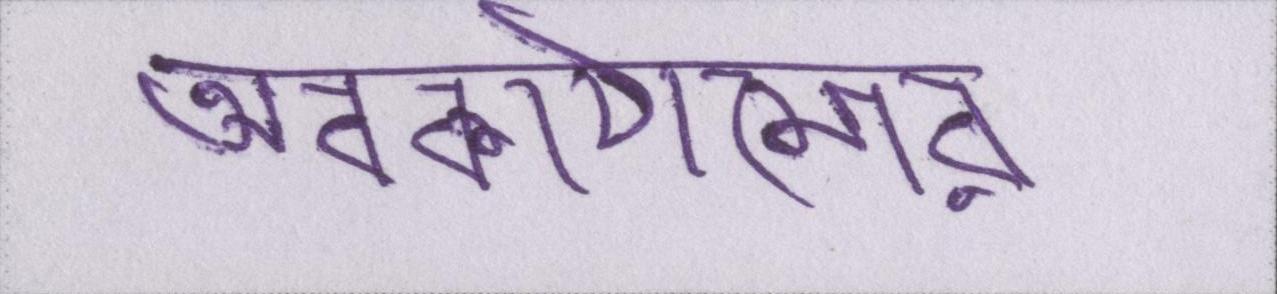 অবকাঠামোর